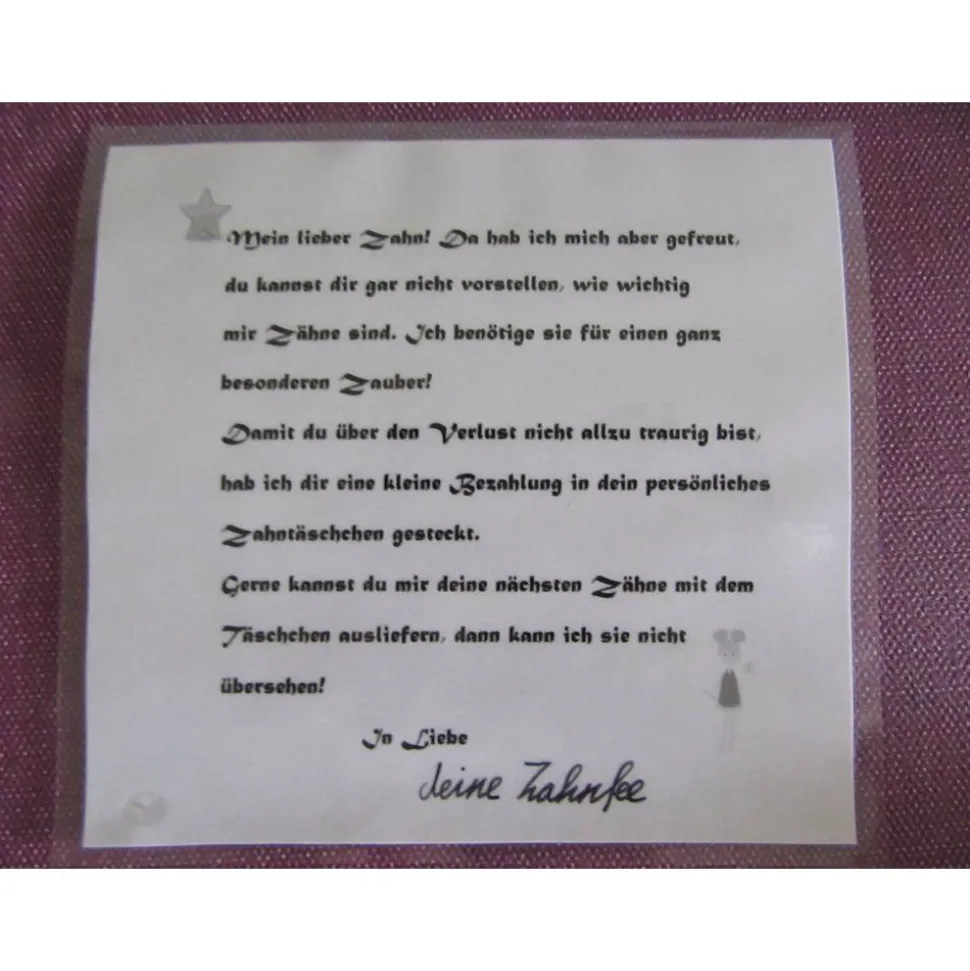 Mein lieber Zahn! Da hab ich mich aber gefreut,
du kannst dir gar nicht vorstellen, wie wichtig
mir Zähne sind. Ich benötige sie für einen ganz
besonderen Zauber!
Damit du über den Verlust nicht allzu traurig bist,
hab ich dir eine kleine Bezahlung in dein persönliches
Zahntäschchen gesteckt.
Gerne kannst du mir deine nächsten Zähne mit dem
Täschchen ausliefern, dann kann ich sie nicht
übersehen!
In Liebe
deine Zahnfee